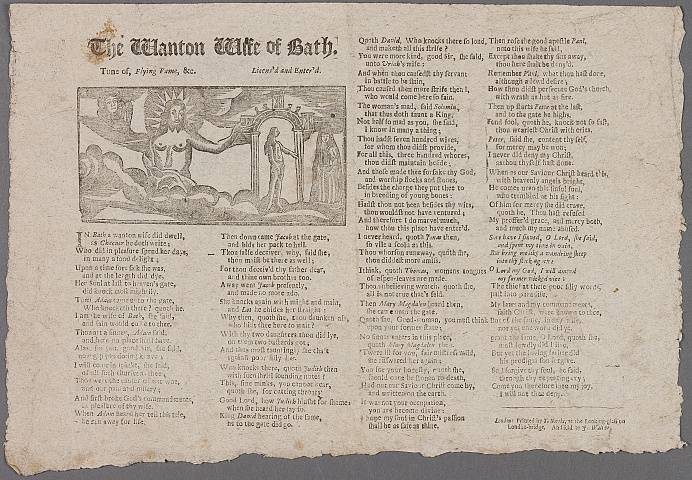 The Wanton Wife of Bath.
Tune of, Flying Fame, &c. Licens'd and Enter'd.
IN Bath a wanton wife did dwell,
as Chaucer he doth write;
Who did in pleasure spend her days,
in many a fond delight;
Upon a time sore sick she was,
and at the length did dye,
Her Soul at last to heaven's gate,
did knock most mightily.
Then Adam came to the gate,
Who knocketh there? quoth he,
I am the wife of Bath, she said,
and fain would come to thee.
Thou art a sinner, Adam said,
and here no place shall have
And first broke God's commandments,
at pleasure of thy wife.
When Adam heard her tell this tale,
he ran away for life;
Then down came Jacob at the gate,
and bids her pack to hell.
Thou false deceiver, why, said she,
thou maist be there as well;
For thou deceiv'd thy father dear,
and thine own brother too.
Away went Jacob presently,
and made no more ado.
She knocks again with might and main,
and Lot he chides her straight:
Why then, quoth she, thou drunken ass,
who bids thee here to wait?
With thy two daughters thou did lye,
on them two bastards got;
And thus most tauntingly she chaft
against poor silly Lot.
Who knocks there, quoth Judith then
with such shrill sounding notes?
This, fine minks, you cannot hear,
quoth she, for cutting throats
Good Lord, how Judith blusht for shame
when she heard her say so.
King David hearing of the same,
he to the gate did go.
Quoth David, Who knocks there so loud,
and maketh all this strife?
You were more kind, good Sir, she said,
unto Uriah's wife:
And when thou caused'st thy servant
in battle to be slain,
Thou caused then more strife than I,
who would come here so fain.
The woman's mad, said Solomon,
that thus doth taunt a King,
Not half so mad as you, she said,
I know in many a thing;
Thou hadst seven hundred wives,
for whom thou didst provide,
For all this, three hundred whores,
thou didst maintain beside:
And those made thee forsake thy God,
and worship stocks and stones,
Besides the charge they put thee to
in breeding of young bones:
Hadst thou not been besides thy wits,
thou wouldst not have ventured;
And therefore I do marvel much,
how thou this place have enter'd.
I never heard, quoth Jonas then,
so vile a scold as this.
Thou whoreson runaway, quoth she,
thou diddest more amiss.
I think, quoth Thomas, womens tongues
of aspen-leaves are made.
Thou unbelieving wretch quoth she,
all is not true that's said.
Then Mary Magdalen heard then,
she came unto the gate.
Quoth she, Good-woman, you must think
upon your former state;
No sinner enters in this place,
quoth Mary Magdalen then.
I hope my soul in Christ's passion
shall be as safe as thine.
Then rose the good apostle Paul,
unto this wife he said,
Except thou shake thy sins away,
thou here shalt be deny'd.
Remember Paul, what thou hast done,
although a lewd desire;
How thou didst persecute God's church,
with wrath as hot as fire.
Then up starts Peter at the last,
and to the gate he highs.
Fond fool, quoth he, knock not so fast,
thou weariest Christ with cries.
Peter, said she, content thy self,
for mercy may be won;
I never did deny my Christ,
as thou thyself hast done.
When as our Saviour Christ heard this,
with heavenly angels bright,
He comes unto this sinful soul,
who trembled at his sight:
Of him for mercy she did crave,
quoth he, Thou hast refused
My proffer'd grace, and mercy both,
and much my name abused.
Sore have I sinned, O Lord, she said,
and spent my time in vain,
But bring me like a wandring sheep
into thy flock again:
O Lord my God, I will amend
my former wicked vice:
The thief at these poor silly words,
past into paradise.
London: Printed by T. Norris, at the Looking-glass on
London-bridge. And sold by J. Walter.